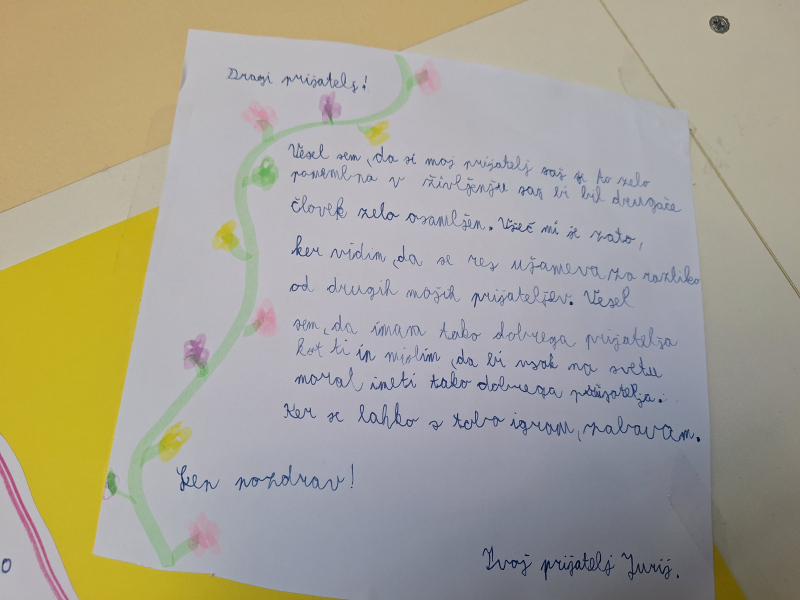 Dragi prijatelj!
Vesel sem, da si moj prijatelj saj je to zelo
pomembna v življenju saj bi bil drugače
človek zelo osamljen. Všeč mi je zato,
ker vidim, da se res ujameva za razliko
od drugih mojih prijateljev. Vesel
sem, da imam tako dobrega prijatelja
kot ti in mislim, da bi vsak na svetu
moral imeti tako dobrega prijatelja.
Ker se lahko s tabo igram, zabavam.
Lep pozdrav!
Tvoj prijatelj Jurij.